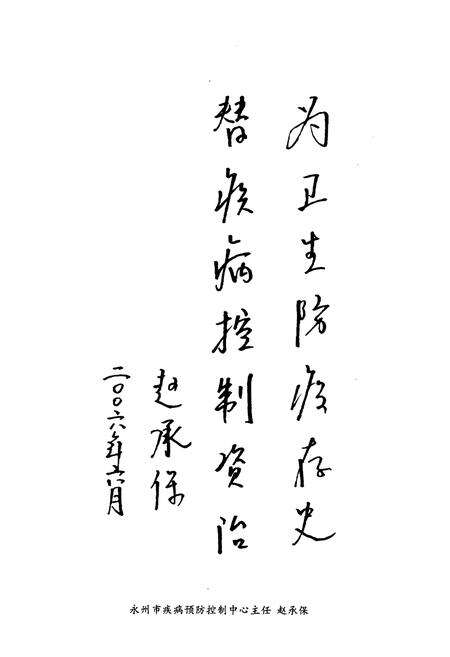 为卫生防疫存史
替疾病控制资治
赵承保
二〇〇六年六月
永州市疾病预防控制中心主任 赵承保